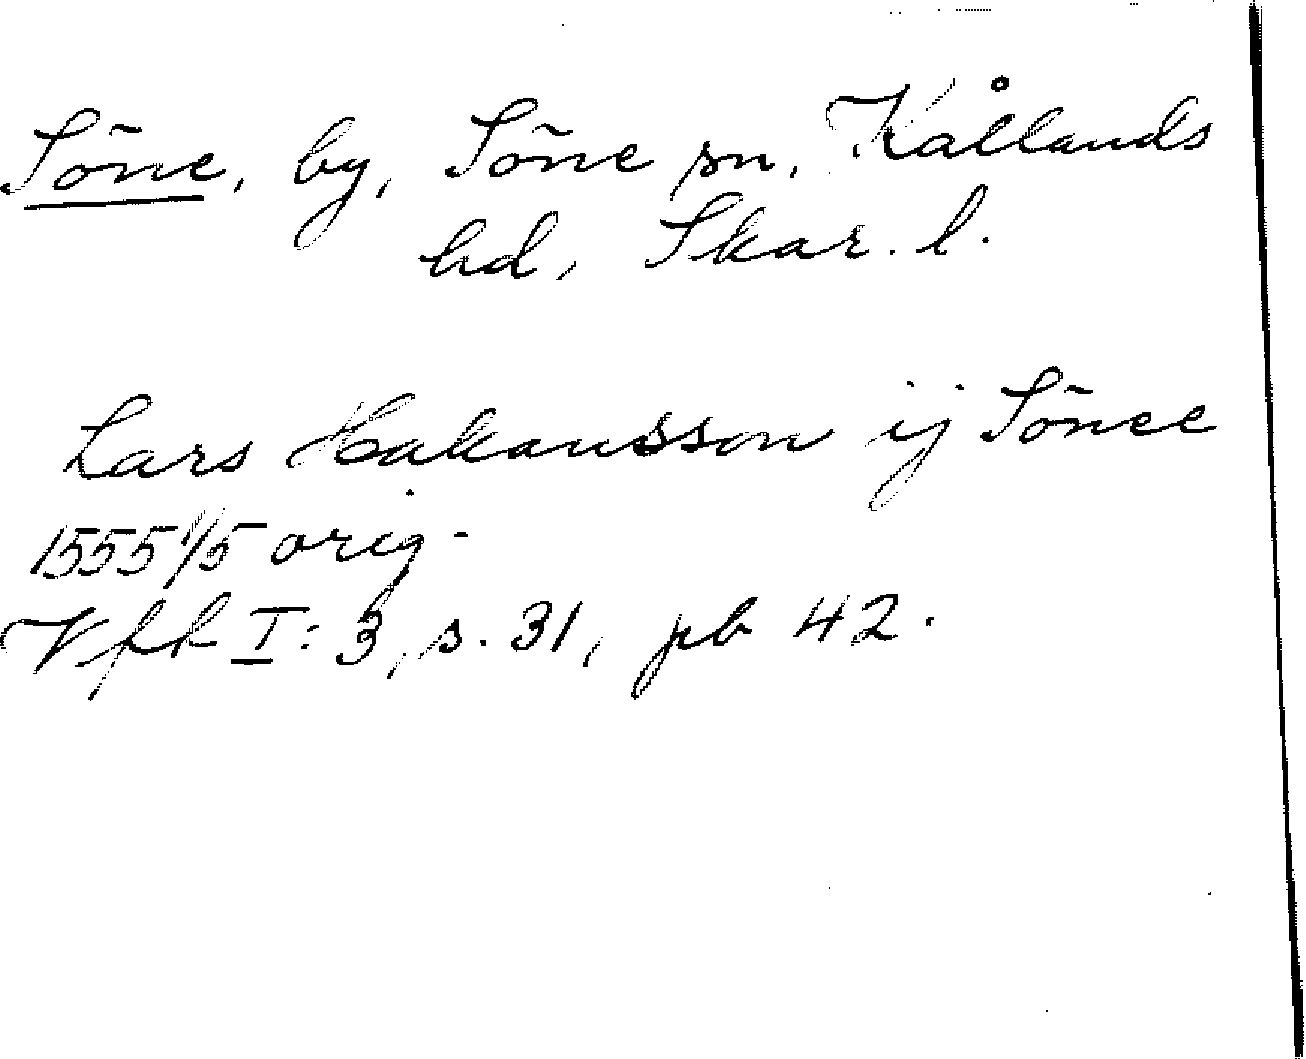 Söne, by, Söne sn, Kållands
hd, Skar. l.
Lars Hakansson ij Sönee
1555 1/5 orig.
Vfk I: 3, s. 31, pb 42.